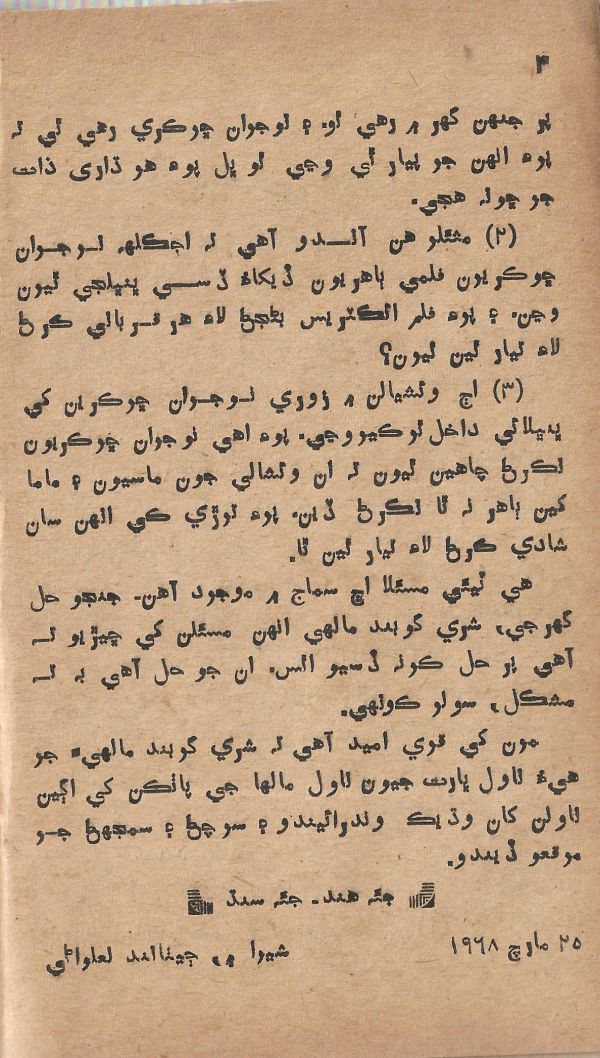 ۴
پر جنهن گهر ۾ رهي ٿو. ۽ نوجوان ڇوڪري رهي ٿي تہ
پوءِ انهن جو پيار ٿي وڃي ٿو ڀل پوءِ هو ڌاري ذات
جو ڇو نہ هجي.
(۲) مثئلو هن آنـــدو آهي تہ اڄڪلهہ نــوجــوان
ڇوڪريون فلمي ٻاهريون ڏيکاءُ ڏســـي ڀنڀلجي ٿيون
وڃن. ۽ پوءِ فلم ائڪٽريس بڻجڻ لاءِ هر قــربانـي ڪـرڻ
لاءِ تيار ٿين ٿيون؟
(۳) اڄ وئشيالن ۾ زوري نــوجــوان ڇوڪرين کي
ڀنڀلائي داخل ٿو ڪيو وڃي. پوءِ اهي نوجوان ڇوڪريون
نڪرڻ چاهين ٿيون تہ ان وئشالي جون ماسيون ۽ ماما
کين ٻاهر نہ ٿا نڪرڻ ڏين. پوءِ توڙي ڪي انهن سان
شادي ڪرڻ لاءِ تيار ٿين ٿا.
هي ٽيئي مسئلا اڄ سماج ۾ موجود آهن. جنجو حل
گهرجي، شري گوبند مالهي انهن مسئلن کي ڇيڙيو تــہ
آهي پر حل ڪونہ ڏسيو اٿس. ان جو حل آهي بہ تــہ
مشڪل، سولو ڪونهي.
مون کي قوي اميد آهي تہ شري گوبند مالهيءَ جو
هيءُ ناول ڀارت جيون ناول مالها جي پاٺڪن کي اڳين
ناولن کان وڌيڪ وندرائيندو ۽ سوچڻ ۽ سمجهڻ جــو
موقعو ڏيندو.
جئہ هند. جئہ سنڌ
۲۵ مارچ ۱۹۶۸ شيرا ۾، جيٺانند لعلواڻي